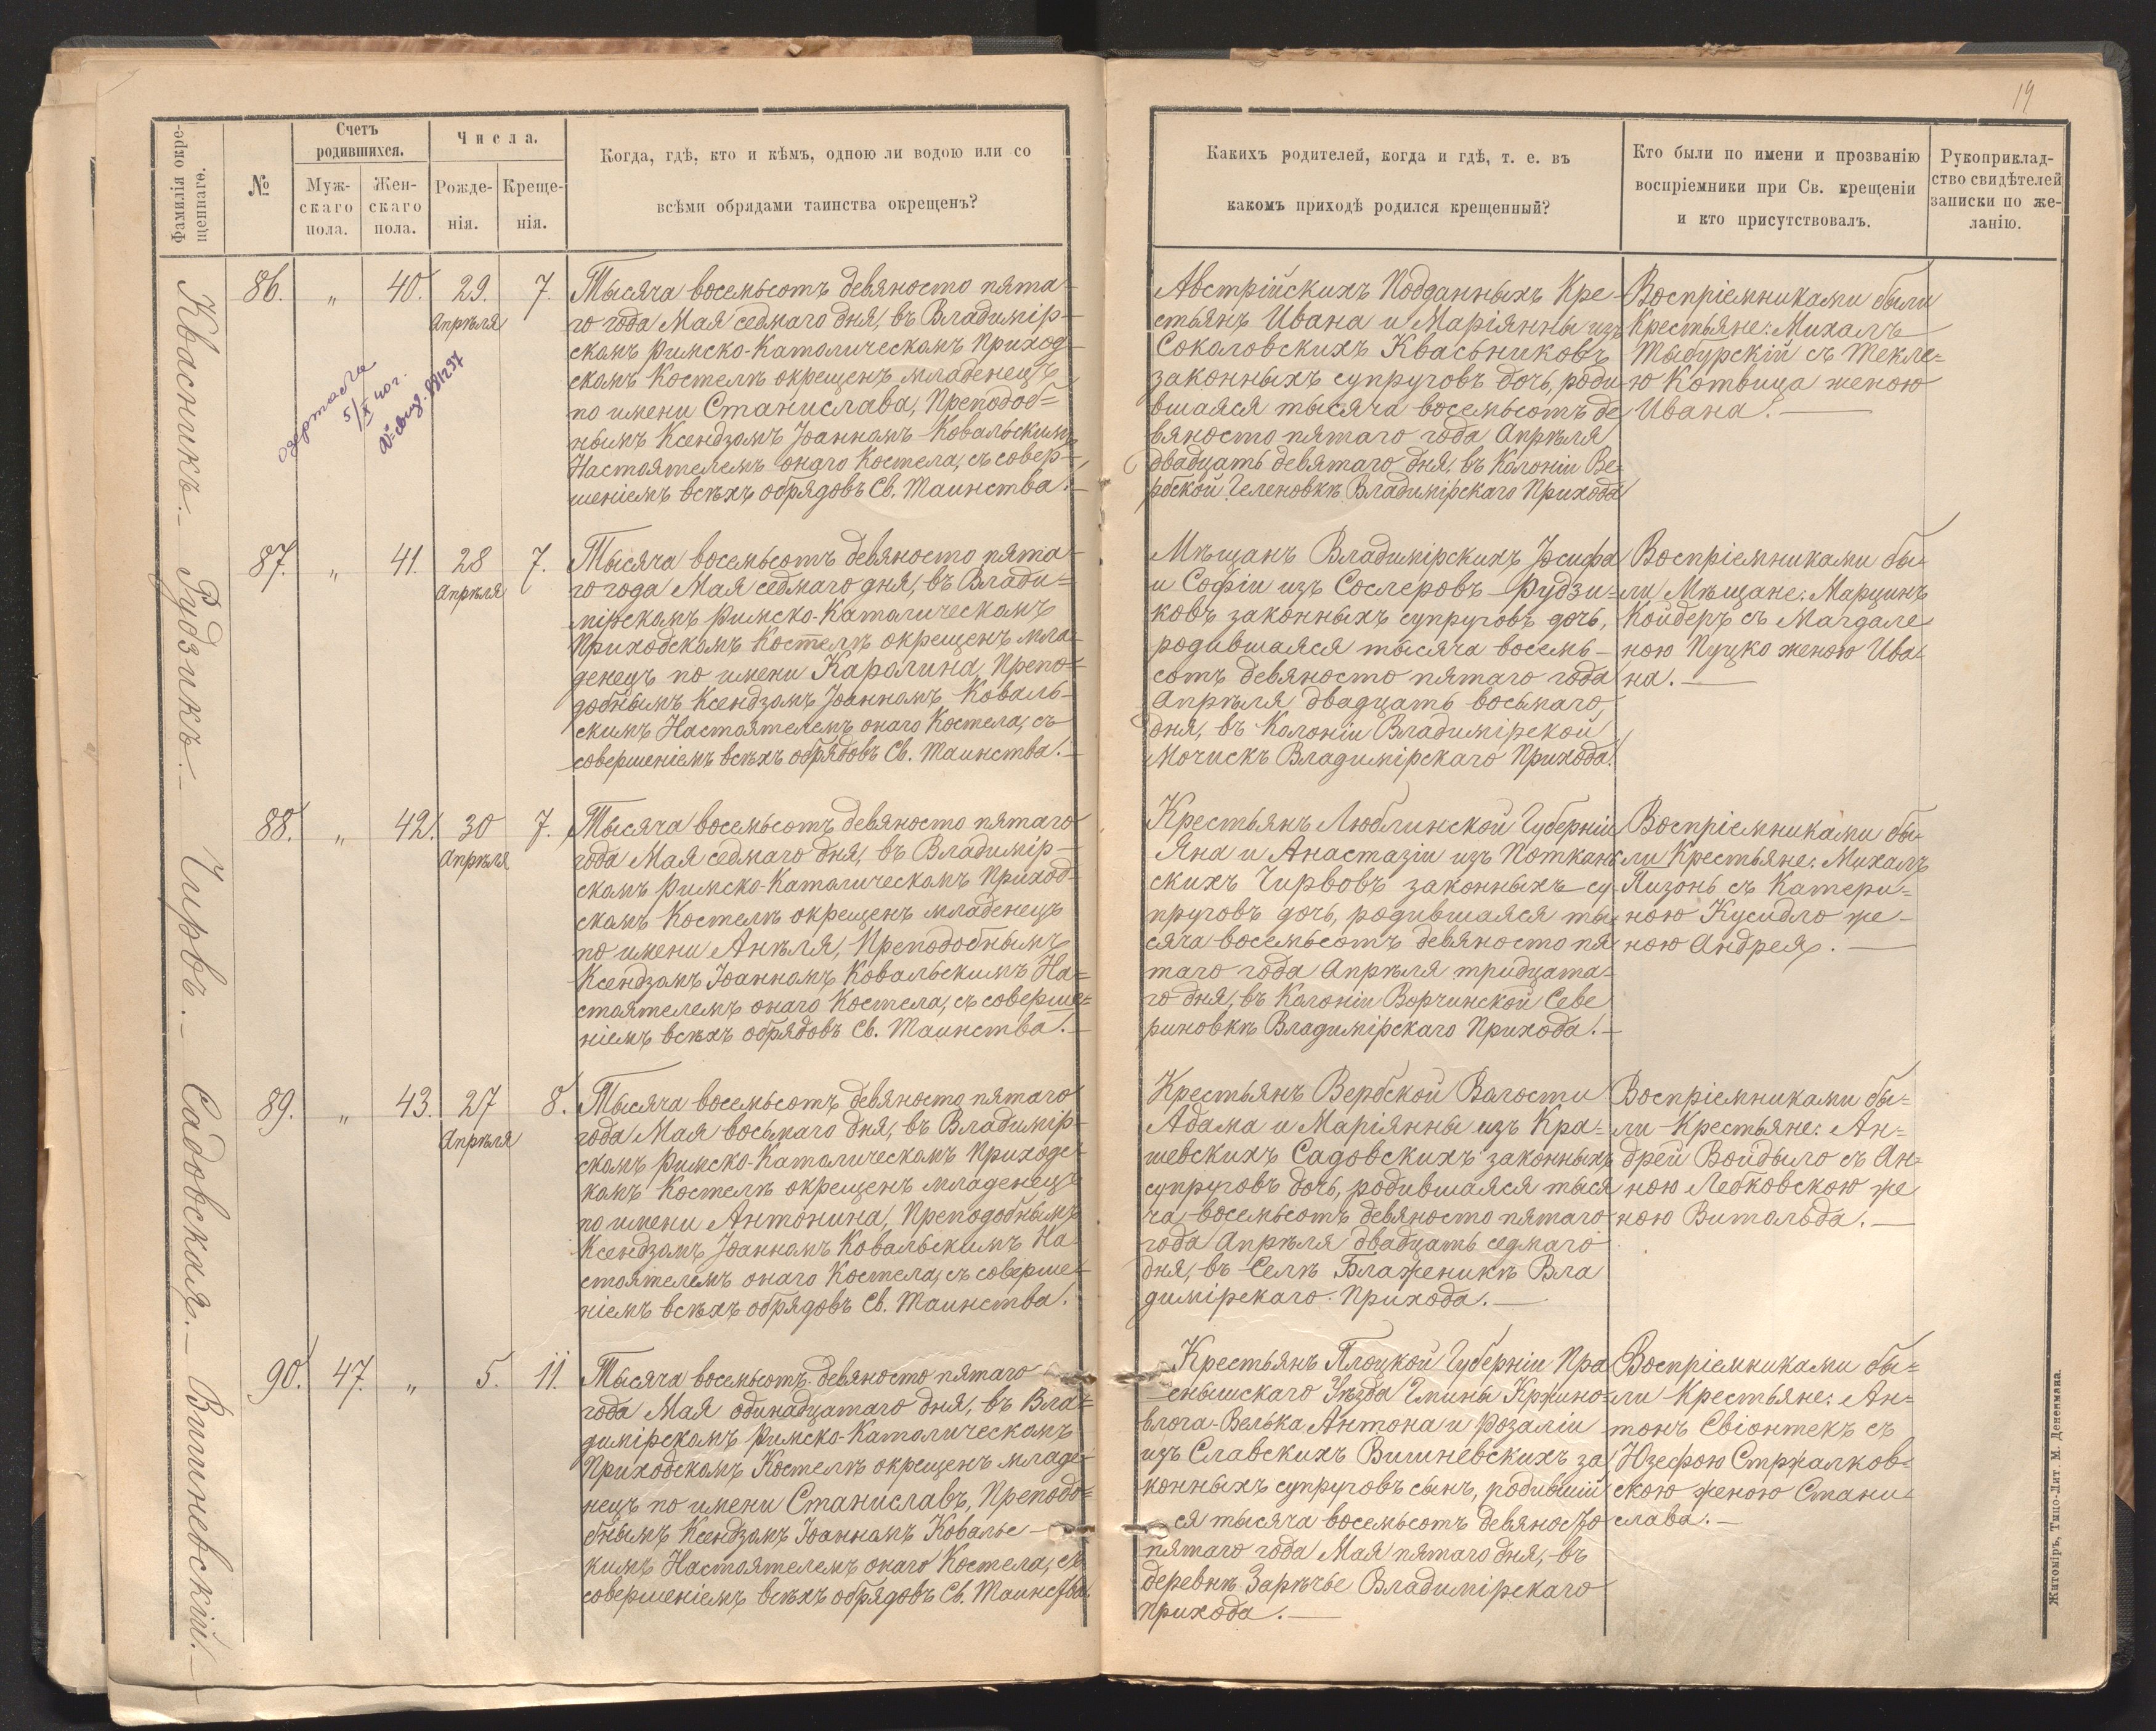 19
Фамилія окре-
щеннаго.
№
Счетъ
родившихся.
Муж-
скаго
пола.
Жен-
скаго
пола.
Числа.
Рожде-
нія.
Креще-
нія.
Когда, гдѣ, кто и кѣмъ, одною ли водою или со
всѣми обрядами таинства окрещенъ?
Какихъ родителей, когда и гдѣ, т. е. въ
какомъ приходѣ родился крещенный?
Кто были по имени и прозванію
воспріемники при Св. крещеніи
и кто присутствовалъ.
Рукоприклад-
ство свидѣтелей
записки по же-
ланію.
Квасникъ.-
86. " 40. 29. 7.
Апрѣля
5/X 40 г.
Тысяча восемьсотъ девяносто пята-
го года Мая седмаго дня, въ Владимір-
скомъ Римско-Католическомъ Приход-
скомъ Костелѣ окрещенъ младенецъ
по имени Станислава, Преподоб=
нымъ Ксендзомъ Іоанномъ Ковальскимъ
Настоятелемъ онаго Костела, съ совер-
шеніемъ всѣхъ обрядовъ Св. Таинства.-
Австрійскихъ Подданныхъ Кре-
стьянъ Ивана и Маріянны изъ
Соколовскихъ Квасьниковъ
законныхъ супруговъ дочь, роди-
вшаяся тысяча восемьсотъ де
вяносто пятаго года Апрѣля
двадцать девятаго дня, въ Колоніи Ве-
рбской Геленовкѣ Владимірскаго Прихода
Воспріемниками были
Крестьяне: Михалъ
Тыбурскій съ Текле=
ю Котвица женою
Ивана.-
Рудзикъ.-
87. " 41. 28 7.
Апрѣля
Тысяча восемьсотъ девяносто пята-
го года Мая седмаго дня, въ Влади=
мірскомъ Римско-Католическомъ
Приходскомъ Костелѣ окрещенъ мла-
денецъ по имени Каролина, Препо=
добнымъ Ксендзомъ Іоанномъ Коваль-
скимъ Настоятелемъ онаго Костела, съ
совершеніемъ всѣхъ обрядовъ Св. Таинства.-
Мѣщанъ Владимірскихъ Іосифа
и Софіи изъ Сослеровъ Рудзи-
ковъ законныхъ супруговъ дочь,
родившаяся тысяча восемь-
сотъ девяносто пятаго года
Апрѣля двадцать восьмаго
дня, въ Колоніи Владимірской
Мочискъ Владимірскаго Прихода.
Воспріемниками бы-
ли Мѣщане: Марцинъ
Койдеръ съ Магдале
ною Пуцко женою Ива-
на.-
Чирвъ.-
88. " 42. 30 7.
Апрѣля
Тысяча восемьсотъ девяносто пятаго
года Мая седмаго дня, въ Владимір-
скомъ Римско-Католическомъ Приход-
скомъ Костелѣ окрещенъ младенецъ
по имени Анѣля, Преподобнымъ
Ксендзомъ Іоанномъ Ковальскимъ На=
стоятелемъ онаго Костела, съ соверше=
ніемъ всѣхъ обрядовъ Св. Таинства.-
Крестьянъ Люблинской Губерніи
Яна и Анастазіи изъ Поткан
скихъ Чирвовъ законныхъ су-
пруговъ дочь, родившаяся ты-
сяча восемьсотъ девяносто пя
таго года Апрѣля тридцата-
го дня, въ Колоніи Ворчинской Севе
риновкѣ Владимірскаго Прихода.-
Воспріемниками бы-
ли Крестьяне: Михалъ
Пизонь съ Катери=
ною Кусидло же-
ною Андрея.-
Садовская.-
89. " 43. 27 8.
Апрѣля
Тысяча восемьсотъ девяносто пятаго
года Мая восьмаго дня, въ Владимір-
скомъ Римско-Католическомъ Приходс-
комъ Костелѣ окрещенъ младенецъ
по имени Антонина, Преподобнымъ
Ксендзомъ Іоанномъ Ковальскимъ На
стоятелемъ онаго Костела, съ соверше-
ніемъ всѣхъ обрядовъ Св. Таинства.
Крестьянъ Вербской Волости
Адама и Маріянны изъ Кра-
шевскихъ Садовскихъ законныхъ
супруговъ дочь, родившаяся тыся
ча восемьсотъ девяносто пятаго
года Апрѣля двадцать седмаго
дня, въ Селѣ Блаженикѣ Вла
димірскаго Прихода.-
Воспріемниками бы=
ли Крестьяне: Ан=
дрей Войдыло съ Ан-
ною Лебковскою же
ною Витольда.-
Вишневскій.-
90. 47. " 5. 11.
Тысяча восемьсотъ девяносто пятаго
года Мая одинадцатаго дня, въ Вла=
димірскомъ Римско-Католическомъ
Приходскомъ Костелѣ окрещенъ младе-
нецъ по имени Станиславъ, Преподо=
бнымъ Ксендзомъ Іоанномъ Ковальс-
кимъ Настоятелемъ онаго Костела, съ
совершеніемъ всѣхъ обрядовъ Св. Таинства.
Крестьянъ Плоцкой Губерніи Пра
снышскаго Уѣзда Гмины Кржино-
влога-Велька Антона и Розаліи
изъ Славскихъ Вишневскихъ за
конныхъ супруговъ сынъ, родивший
ся тысяча восемьсотъ девяносто
пятаго года Мая пятаго дня, въ
деревнѣ Зарѣчье Владимірскаго
Прихода.-
Воспріемниками бы=
ли Крестьяне: Ан=
тонъ Свіонтекъ съ
Юзефою Стржалков=
скою женою Стани=
слава.-
Житомиръ, Типо-Лит. М. Дененмана.